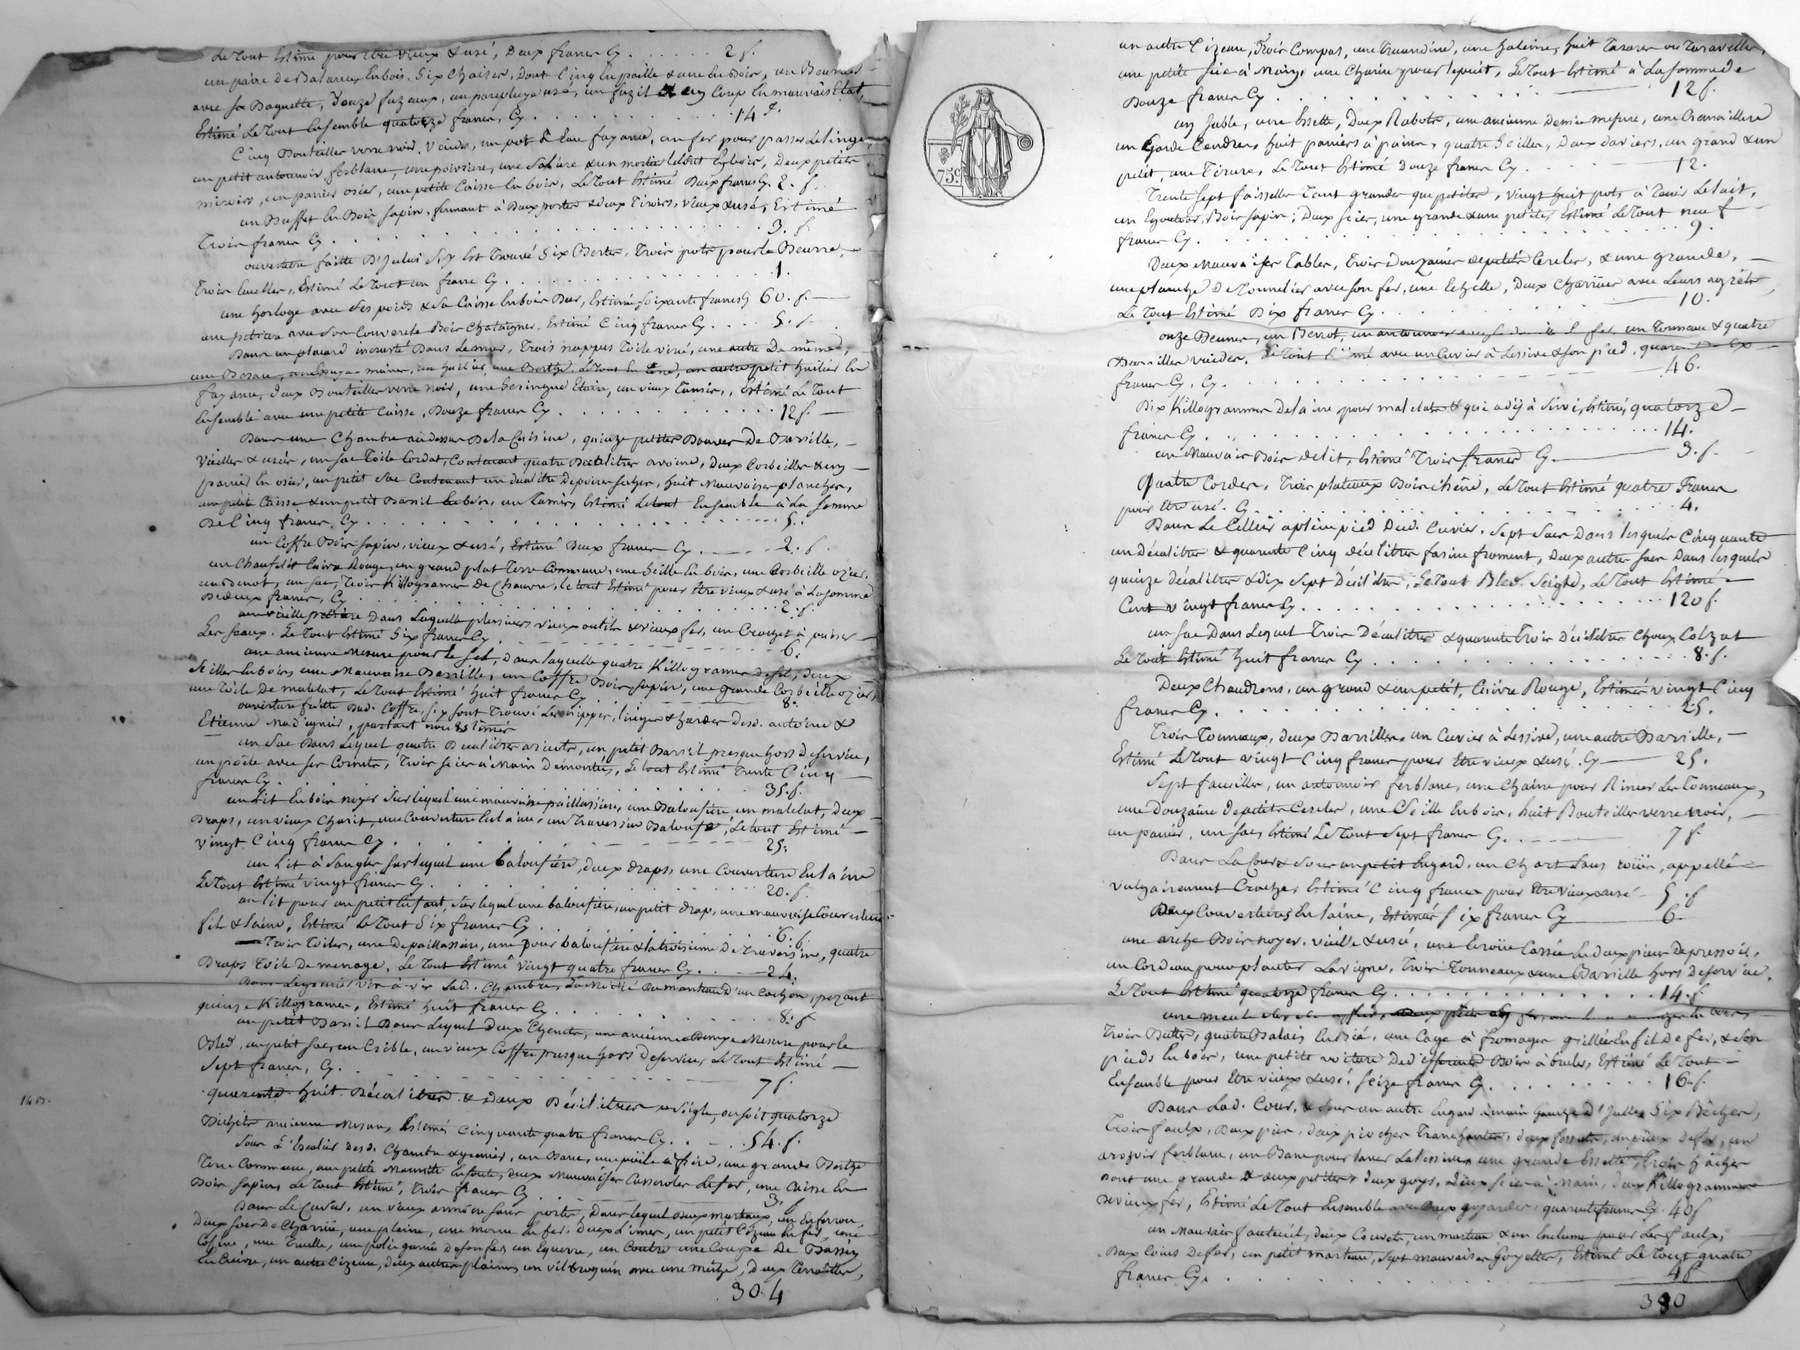 Le Tout Estimé pour être vieux & usé, Deux francs Cy . . . . . . 2 f.
un paire de Balances en bois, Six Chaises, Dont Cinq en paille & une en Bois, un
avec sa Baguette, Douze fuzeaux, un parepluye usé, un fuzil à un Coup en mauvais Etat,
Estimé Le Tout Ensemble quatorze francs, Cy . . . . . . 14 f.
Cinq Bouteilles verre noir, vuides, un pot à Eau fayance, un fer pour passer Le linge,
un petit entonnoir ferblanc, une poivrière, une Salière & un mortier, Deux petits
miroirs, un panier osier, une petite Caisse en bois, Le Tout Estimé Deux francs Cy. 2. f.
un Buffet en Bois Sapin, fermant à Deux portes & deux Tiroirs, vieux & usé, Estimé
Trois francs Cy . . . . . . 3. f
ouverture faitte D'Jcelui s'y Est Trouvé Six Bertes, Trois pots pour Le Beurre,
Trois Cueillers, Estimé Le Tout un franc Cy . . . . . . 1.
une horloge avec Ses poids & Sa Caisse En bois Dur, Estimé Soixante francs Cy 60. f.
une pétrière avec Son Couvercle Bois Chataignes, Estimé Cinq francs Cy . . . . 5. f.
Dans un placard incrusté Dans Le mur, Trois nappes Toile usé, une autre De même,
une huilier, une Berthe, Le Tout En Terre, un autre petit huilier En
fayance, deux Bouteilles verre noir, une Seringue Etain, un vieux Tamis, Estimé Le Tout
Ensemble avec une petite Caisse, Douze francs Cy . . . . . . 12 f.
Dans une Chambre au dessus De La Cuisine, quinze petites De Barille,
vieilles & usées, un Sac Toile Cordat, Contenant quatre Décalitres avoine, Deux Corbeilles & un
panier En osier, un petit Sac Contenant un décalitre De poires Sèches, huit Mauvaises planches,
une petite Caisse & un petit Baril En bois, un Tamis, Estimé Le tout Ensemble à La Somme
De Cinq francs, Cy . . . . . . 5.
un Coffre Bois Sapin, vieux & usé, Estimé Deux francs Cy . . . . 2. f
un Chauflit Cuivre Rouge, un grand plat Terre Commune, une Seille En bois, une Corbeille ozier,
un Sac, Trois Killogrames De Chanvre, Le tout Estimé pour être vieux & usé à La Somme
De deux francs, Cy . . . . . . 2. f.
une vieille pétrière Dans Laquelle plusieurs vieux outils & vieux fer, un Crochet à puiser
Les Seaux, Le Tout Estimé Six francs Cy . . . . . . 6.
une ancienne Mesure pour le Sel, Dans laquelle quatre Killogrames de Sel, deux
Seilles En bois, une Mauvaise Barille, un Coffre Bois Sapin, une grande Corbeille ozier,
une Toile De matelat, Le Tout Estimé huit francs Cy . . . . . . 8.
ouverture faitte Dud. Coffre, s'y sont Trouvé Les nippes, linges & hardes Desd. antoine &
Etienne partant non Estimés
un Sac Dans Lequel quatre Décalitres , un petit Barril presque hors De Service,
un poële avec Ses Cornets, Trois Scies à Main Démontées, Le tout Estimé Trente Cinq
francs Cy . . . . . . 35. f.
un Lit En bois noyer Sur lequel une mauvaise paillassière, une Baloufière, un matelat, Deux
Draps, un vieux Charit, une Couverture En Laine, un Traversin Balouffe, Le tout Estimé
vingt Cinq francs Cy . . . . . . 25.
un Lit à Sangles Sur lequel une baloufière, deux draps, une Couverture En laine
Le Tout Estimé vingt francs Cy . . . . . . 20. f.
un Lit pour un petit Enfant, Sur lequel une baloufière, un petit drap, une mauvaise Couverture
fil & laine, Estimé Le Tout Six francs Cy . . . . . . 6. f.
Trois Toiles, une De paillassière, une pour baloufière & la troisième De Traversin, quatre
Draps Toile De menage, Le Tout Estimé vingt quatre francs Cy . . . . 24.
Dans Le grenier vis à vis Lad. Chambre, La Moitié Du manteau D'un Cochon, pezant
quinze Killogrames, Estimé huit francs Cy . . . . . . 8. f
un petit Barril Dans Lequel Deux , une ancienne Demye Mesure pour le
Bled, un petit Sac, un Crible, un vieux Coffre presque hors De Service, Le Tout Estimé
Sept francs, Cy . . . . . . 7 f.
quarante huit Décalitres & Deux Décilitres Seigle, ou soit quatorze
Bichets ancienne Mesure, Estimés Cinquante quatre francs Cy . . . . 54. f.
Sous L'Escalier Desd. Chambre & grenier, un Banc, une poële à frire, une grande Berthe
Terre Commune, une petite Marmite En fonte, deux Mauvaises Casseroles De fer, une Caisse En
Bois Sapin, Le Tout Estimé, Trois francs Cy . . . . . . 3.
Dans Le Cuvat, un vieux armoire Sans portes, Dans lequel Deux marteaux, un
Deux Socs De Charrüe, une plaine, une Deux Limes, un petit Cizeau En fer, une
En Cuivre, un autre Cizeau, deux autres plaines, un vilbroquin avec une mèche, Deux Tenailles,
304
75c
un autre Cizeau, Trois Compas, une , une haleine, huit Taraires ou Taravelles,
une petite Scie à Main, une Chaine pour Le puit, Le Tout Estimé à La Somme de
Douze francs Cy . . . . . . 12 f.
un Jable, une Essette, Deux Rabots, une ancienne Demie mesure, une Cramaillère
un Garde Cendres, huit paniers à pain, quatre Seilles, Deux Daviers, un grand & un
petit, une Tireuse, Le Tout Estimé Douze francs Cy . . . . 12.
Trente Sept faisselles Tant grandes que petites, vingt huit pots à Tenir Le lait,
un Egoutoir Bois Sapin, Deux Scies, une grande & une petite, Estimé Le Tout neuf
francs Cy . . . . . . 9.
Deux Mauvaises Tables, Trois Douzaines De petits Cercles, & une grande,
une planche De Tonnelier avec Son fer, une Echelle, Deux Charrües avec Leurs agrêts,
Le Tout Estimé Dix francs Cy . . . . . . 10.
onze Bennes, un Berrot, un entonnoir un Tonneau & quatre
Barailles vuides, Le Tout Estimé avec un Cuvier à Lessive & Son pied, quarante Six
francs Cy, Cy . . . . . . 46.
Dix Killogrammes De laine pour matelats & qui a déjà Servi, Estimés quatorze
francs Cy . . . . . . 14.
un Mauvais Bois De lit, Estimé Trois francs Cy. 3. f.
Quatre Cordes, Trois plateaux Bois Chêne, Le Tout Estimé quatre Francs
pour être usé. Cy . . . . . . 4.
Dans Le Cellier aplein pied Dud. Cuvier, Sept Sacs Dans lesquels Cinquante
un Décalitres & quarante Cinq décilitres farine froment, Deux autres Sacs Dans lesquels
quinze décalitres & dix Sept Décilitres, Le Tout Bled Seigle, Le Tout Estimé
Cent vingt francs Cy . . . . . . 120 f.
un Sac Dans Lequel Trois Décalitres & quarante Trois Décilitres Choux Colzat
Le Tout Estimé huit francs Cy . . . . . . 8. f.
Deux Chaudrons, un grand & un petit, Cuivre Rouge, Estimés vingt Cinq
francs Cy . . . . . . 25.
Trois Tonneaux, deux Barrilles, un Cuvier à Lessive, une autre Barrille,
Estimé Le Tout vingt Cinq francs pour Etre vieux & usé, Cy 25.
Sept faucilles, un entonnoir ferblanc, une Chaine pour Rincer Les Tonneaux,
une Douzaine De petits Cercles, une Seille En bois, huit Bouteilles verre noir,
un panier, un Sac, Estimé Le Tout Sept francs Cy . . . . 7 f.
Dans La Cour & Sous un petit hagard, un Chart Sans roües, appellé
vulgairement Crochet, Estimé Cinq francs pour Etre vieux & usé 5. f
Deux Couvertures En laine, Estimées Six francs Cy 6.
une arche Bois noyer, vieille & usé, une Ecroüe Cassée De deux pieux De pressoir,
un Cordeau pour planter La vigne, Trois Tonneaux & une Barille hors De Service,
Le Tout Estimé quatorze francs Cy . . . . . . 14. f.
Trois Battes, quatre Balais En , une Cage à fromages grillée En fil De fer, & Son
pieds En bois, une petite voiture Ded. Bois à bruler, Estimé Le Tout
Ensemble pour Etre vieux & usé, Seize francs Cy . . . . 16. f.
Dans Lad. Cour, & Sous un autre hagard à main Gauche D'Jcelle, Six Bêches,
Trois faulx, Deux pics, deux pioches Tranchantes, deux fessoirs, un pieux De fer, un
arrozoir ferblanc, un Banc pour laver La Lessive, une grande Essette, Trois haches
Dont une grande & deux petites, deux goys, Deux Scies à Main, deux Killogrammes
De vieux fer, Estimé Le Tout Ensemble avec Deux , quarante francs Cy. 40 f
un Mauvais fauteuil, deux , un marteau & un Enclume pour Les faulx,
Deux Coins De fer, un petit marteau, Sept mauvaises Goyettes, Estimé Le Tout quatre
francs Cy . . . . . . 4 f
380